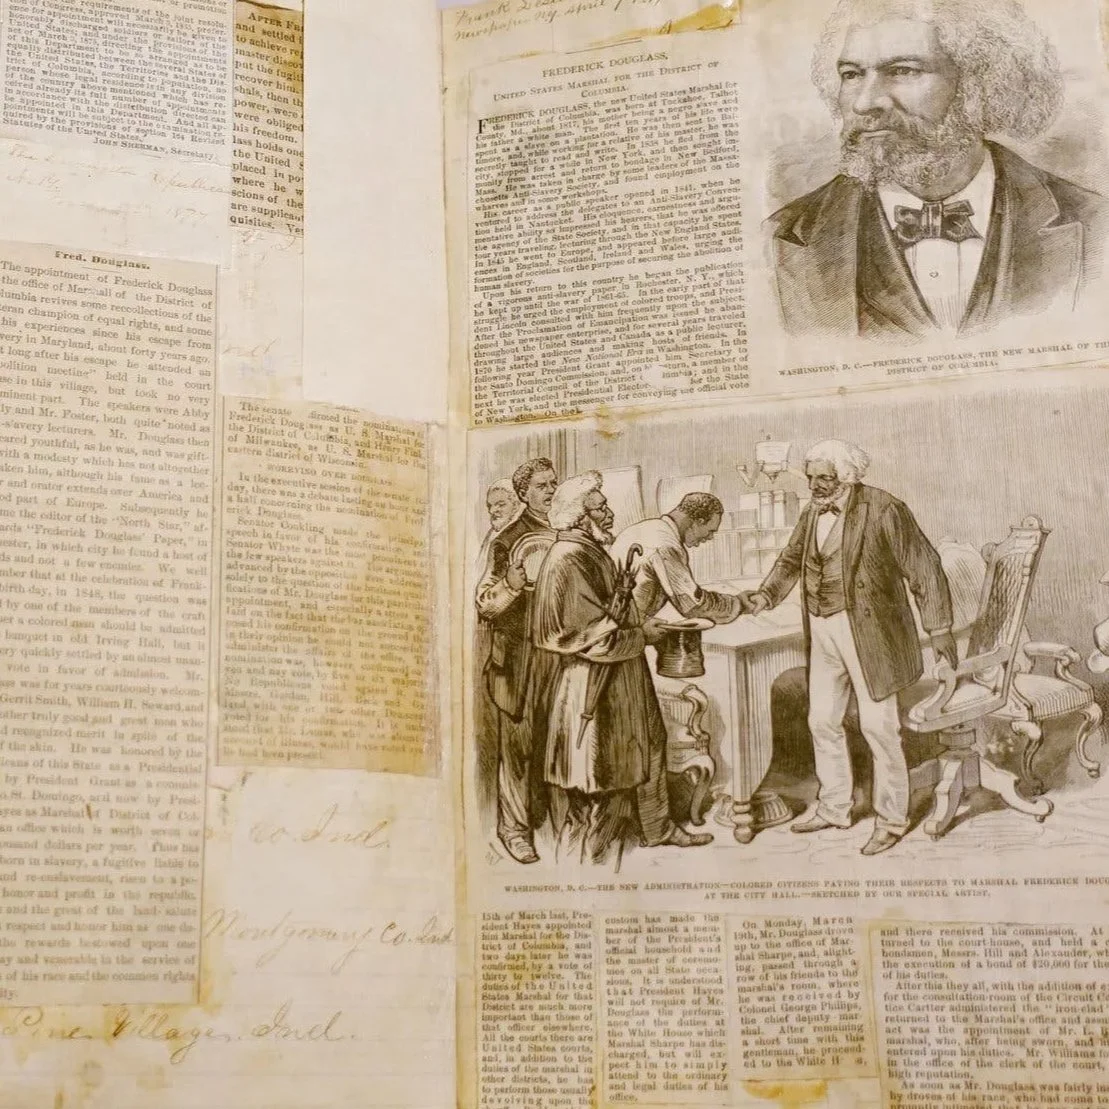 of Congress, approved March 3, 1875, prefer-
honorably discharged soldiers or sailors of the
United States; and under the provisions of the
act of March 3, 1875, directing the appointments
of this Department to be so arranged as to be
equally distributed between the several States of
the United States, the Territories and the Dis-
trict of Columbia, according to population, no
person whose legal residence is in any division
of the country above mentioned which has re-
ceived already its full number of appointments
in accordance with the distribution directed can
be appointed in this Department. And all ap-
pointments will be subject to the examination re-
quired by the provisions of section 164 Revised
Statutes of the United States.
JOHN SHERMAN, Secretary
AFTER
and settled
to achieve
master
put the fugiti
recover him.
shals, then th
power, were
were oblige
his freedom.
lass holds one
the United S
placed in po
where he w
scions of the
are supplica
quisites. Yet
Fred. Douglass.
The appointment of Frederick Douglass
the office of Marshall of the District of
lumbia revives some recollections of the
eran champion of equal rights, and some
his experiences since his escape from
very in Maryland, about forty years ago.
t long after his escape he attended an
olition meeting" held in the court
se in this village, but took no very
minent part. The speakers were Abby
ly and Mr. Foster, both quite noted as
-slavery lecturers. Mr. Douglass then
eared youthful, as he was, and was gift-
with a modesty which has not altogether
aken him, although his fame as a lec-
r and orator extends over America and
od part of Europe. Subsequently he
me the editor of the "North Star," af-
ards "Frederick Douglass' Paper," in
ester, in which city he found a host of
ds and not a few enemies. We well
mber that at the celebration of Frank-
birth day, in 1848, the question was
d by one of the members of the craft
er a colored man should be admitted
banquet in old Irving Hall, but it
ery quickly settled by an almost unan-
vote in favor of admission. Mr.
ass was for years courteously welcom-
Gerrit Smith, William H. Seward, and
other truly good and great men who
d recognized merit in spite of the
f the skin. He was honored by the
icans of this State as a Presidential
by President Grant as a commis-
o St. Domingo, and now by Presi-
yes as Marshal of District of Col-
an office which is worth seven or
ousand dollars per year. Thus has
born in slavery, a fugitive liable to
and re-enslavement, risen to a po-
honor and profit in the republic.
and the great of the land salute
respect and honor him as one de-
the rewards bestowed upon one
ay and venerable in the service of
of his race and the common rights
ity.
The senate confirmed the nominations of
Frederick Douglass as U. S. Marshal for
the District of Columbia, and Henry Fink
of Milwaukee, as U. S. Marshal for the
eastern district of Wisconsin.
WORRYING OVER DOUGLASS.
In the executive session of the senate to-
day, there was a debate lasting an hour and
a half concerning the nomination of Fred-
erick Douglass.
Senator Conkling made the principal
speech in favor of his confirmation, and
Senator Whyte was the most prominent of
the few speakers against it.
advanced by the opposition were addressed
solely to the question of the business quali-
fications of Mr. Douglass for this particular
appointment, and especially a stress was
laid on the fact that the bar association op-
posed his confirmation on the ground that
in their opinion he could not successfully
administer the affairs of the office. The
nomination was, however, confirmed
No Republicans voted against it.
voted for his confirmation.
had been present.
Co Ind.
Montgomery Co. Ind
Pine Village. Ind.
FREDERICK DOUGLASS,
UNITED STATES MARSHAL FOR THE DISTRICT OF
COLUMBIA.
FREDERICK DOUGLASS, the new United States Marshal for
the District of Columbia, was born at Tuckahoe, Talbot
County, Md., about 1817, his mother being a negro slave and
his father a white man. The first ten years of his life were
spent as a slave on a plantation. He was then sent to Bal-
timore, and, while working for a relative of his master, he was
secretly taught to read and write. In 1838 he fled from the
city, stopped for a while in New York, and then sought im-
munity from arrest and return to bondage in New Bedford,
Mass. He was taken in charge by some leaders of the Massa-
chusetts Anti-Slavery Society, and found employment on the
wharves and in some workshops.
His career as a public speaker opened in 1841, when he
ventured to address the delegates to an Anti-Slavery Conven-
tion held in Nantucket. His eloquence, earnestness and argu-
mentative ability so impressed his hearers, that he was offered
the agency of the State Society, and in that capacity he spent
four years traveling, lecturing through the New England States.
In 1845 he went to Europe, and appeared before large audi-
ences in England, Scotland, Ireland and Wales, urging the
formation of societies for the purpose of securing the abolition of
human slavery.
Upon his return to this country he began the publication
of a vigorous anti-slavery paper in Rochester, N. Y., which
he kept up until the war of 1861-65. In the early part of that
struggle he urged the employment of colored troops, and Presi-
dent Lincoln consulted with him frequently upon the subject.
After the Proclamation of Emancipation was issued he aban-
doned his newspaper enterprise, and for several years traveled
throughout the United States and Canada as a public lecturer,
drawing large audiences and making hosts of friends. In
1870 he started the New National Era in Washington. In the
following year President Grant appointed him Secretary to
the Santo Domingo Commission, and, on h return, a member of
the Territorial Council of the District c umbia; and in the
next he was elected Presidential Elector for the State
of New York, and the messenger for conveying the official vote
to Washington. On the
WASHINGTON, D. C.—FREDERICK DOUGLASS, THE NEW MARSHAL OF THE
DISTRICT OF COLUMBIA.
WASHINGTON, D. C.—THE NEW ADMINISTRATION—COLORED CITIZENS PAYING THEIR RESPECTS TO MARSHAL FREDERICK DOUG
AT THE CITY HALL.—SKETCHED BY OUR SPECIAL ARTIST.
15th of March last, Pre-
sident Hayes appointed
him Marshal for the Dis-
trict of Columbia, and
two days later he was
confirmed, by a vote of
thirty to twelve. The
duties of the United
States Marshal for that
District are much more
important than those of
that officer elsewhere.
All the courts there are
United States courts,
and, in addition to the
duties of the marshal in
other districts, he has
to perform those usually
devolving upon the
custom has made the
marshal almost a mem-
ber of the President's
official household and
the master of ceremo-
nies on all State occa-
sions. It is understood
that President Hayes
will not require of Mr.
Douglass the perform-
ance of the duties at
the White House which
Marshal Sharpe has dis-
charged, but will ex-
pect him to simply
attend to the ordinary
and legal duties of his
office.
On Monday, March
19th, Mr. Douglass drove
up to the office of Mar-
shal Sharpe, and, alight-
ing, passed through a
row of his friends to the
marshal's room, where
he was received by
Colonel George Philips,
the chief deputy mar-
shal. After remaining
a short time with this
gentleman, he proceed-
ed to the White H e,
and there received his commission. At
turned to the court-house, and held a
bondsmen, Messrs. Hill and Alexander, wh
the execution of a bond of $20,000 for the
of his duties.
After this they all, with the addition of e
for the consultation-room of the Circuit C
tice Carter administered the "iron-clad
returned to the Marshal's office and assu
act was the appointment of Mr. L. B
marshal, who, after being sworn, and
entered upon his duties. Mr. Williams
in the office of the clerk of the court,
high reputation.
As soon as Mr. Douglass was fairly in
by droves of his race, who had come to